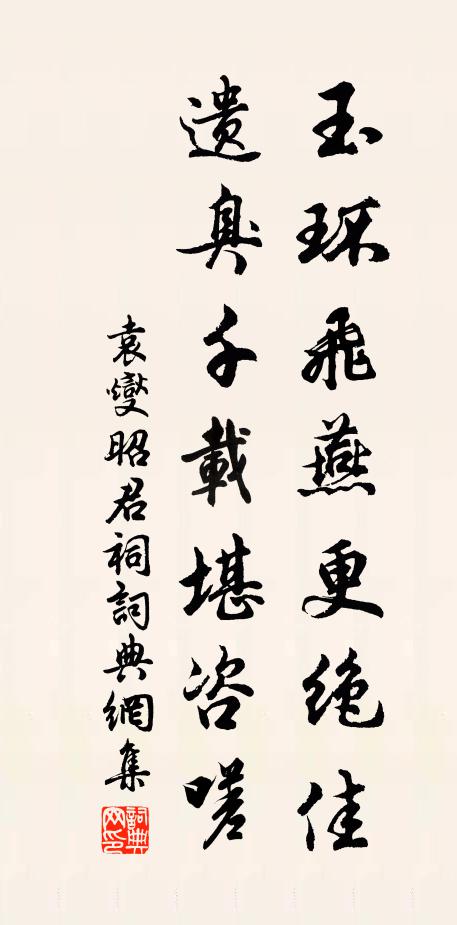 玉环飛燕更絶佳
遺臭千載堪咨嗟
袁燮昭君祠詞典網集
詞典网印